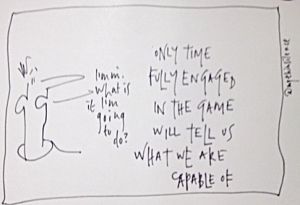 ONLY TIME
FULLY ENGAGED
IN THE GAME
WILL TELL US
WHAT WE ARE
CAPABLE OF
limm.
what is
it I'm
going
to
do?